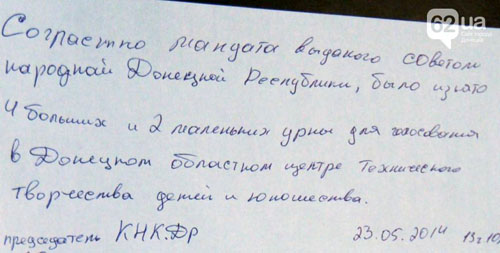 62.ua
Сайт города Донецка
Согластно мандата выданого советом
народнай Донецкой Республики, было изято
4 больших и 2 маленьких урны для голосования
в Донецком областном центре Технического
творчества детей и юношества.
председатель КНК.Др 23.05.2014 13ч10